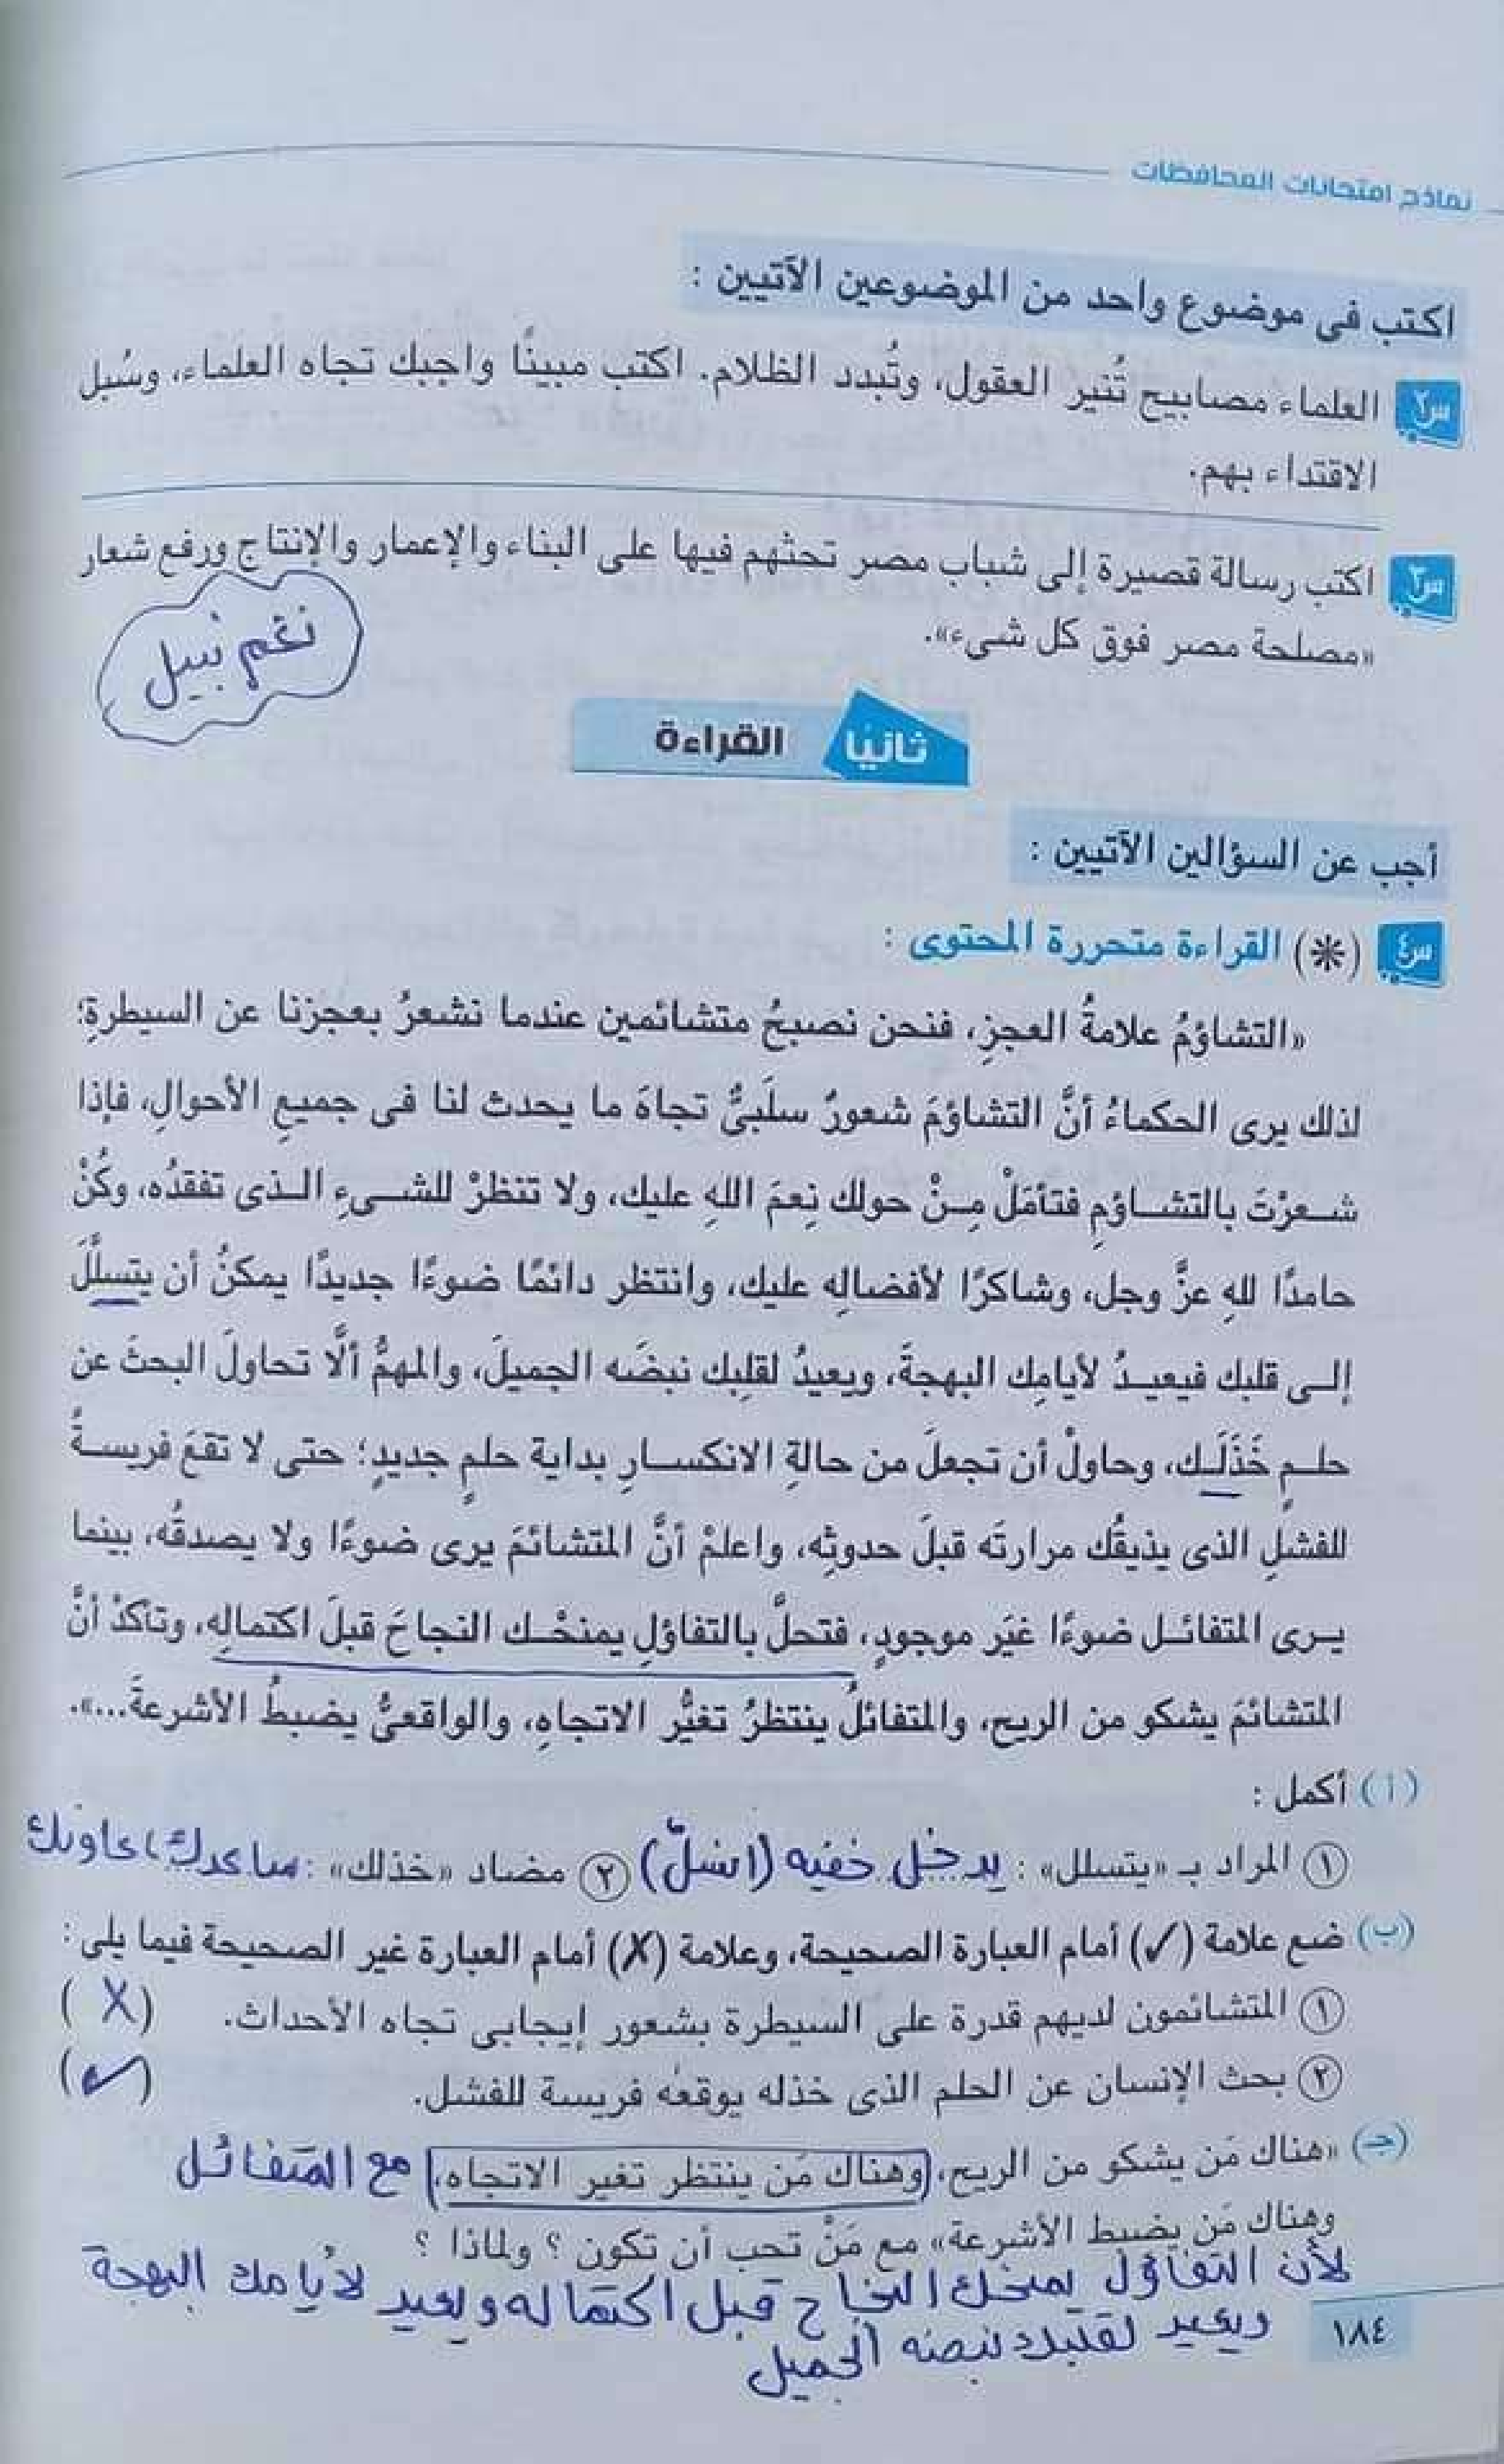 نماذج امتحانات المحافظات
اكتب فى موضوع واحد من الموضوعين الآتيين :
س٢ العلماء مصابيح تُنير العقول، وتُبدد الظلام. اكتب مبينًا واجبك تجاه العلماء، وسُبل
الاقتداء بهم.
س٣ اكتب رسالة قصيرة إلى شباب مصر تحثهم فيها على البناء والإعمار والإنتاج ورفع شعار
«مصلحة مصر فوق كل شىء».
نغم نبيل
ثانيًا القراءة
أجب عن السؤالين الآتيين :
س٤ (*) القراءة متحررة المحتوى :
«التشاؤمُ علامةُ العجزِ، فنحن نصبحُ متشائمين عندما نشعرُ بعجزنا عن السيطرةِ؛
لذلك يرى الحكماءُ أنَّ التشاؤمَ شعورٌ سلَبىٌّ تجاهَ ما يحدث لنا فى جميعِ الأحوالِ، فإذا
شعرْتَ بالتشاؤمِ فتأمَلْ مِنْ حولك نِعمَ اللهِ عليك، ولا تنظرْ للشىءِ الذى تفقدُه، وكُنْ
حامدًا للهِ عزَّ وجل، وشاكرًا لأفضالِه عليك، وانتظر دائمًا ضوءًا جديدًا يمكنُ أن يتسلَّلَ
إلى قلبك فيعيدُ لأيامِك البهجةَ، ويعيدُ لقلبِك نبضَه الجميلَ، والمهمُّ ألَّا تحاولَ البحثَ عن
حلمٍ خَذَلَك، وحاولْ أن تجعلَ من حالةِ الانكسارِ بداية حلمٍ جديدٍ؛ حتى لا تقعَ فريسةً
للفشلِ الذى يذيقُك مرارتَه قبلَ حدوثِه، واعلمْ أنَّ المتشائمَ يرى ضوءًا ولا يصدقُه، بينما
يرى المتفائل ضوءًا غيَر موجودٍ، فتحلَّ بالتفاؤلِ يمنحْك النجاحَ قبلَ اكتمالِه، وتأكدْ أنَّ
المتشائمَ يشكو من الريحِ، والمتفائلُ ينتظرُ تغيُّر الاتجاهِ، والواقعىُّ يضبطُ الأشرعةَ...».
(أ) أكمل :
① المراد بـ «يتسلل» : يدخل خفيه (انسلّ) ② مضاد «خذلك» : ساعدك، عاونك
(ب) ضع علامة (✓) أمام العبارة الصحيحة، وعلامة (X) أمام العبارة غير الصحيحة فيما يلى :
① المتشائمون لديهم قدرة على السيطرة بشعور إيجابى تجاه الأحداث. (X)
② بحث الإنسان عن الحلم الذى خذله يوقعه فريسة للفشل. (✓)
(جـ) «هناك مَن يشكو من الريح، وهناك مَن ينتظر تغير الاتجاه، مع المتفائل
وهناك مَن يضبط الأشرعة» مع مَنْ تحب أن تكون ؟ ولماذا ؟
لأن التفاؤل يمنحك النجاح قبل اكتماله ويعيد لأيامك البهجة
ويعيد لقلبك نبضه الجميل
١٨٤